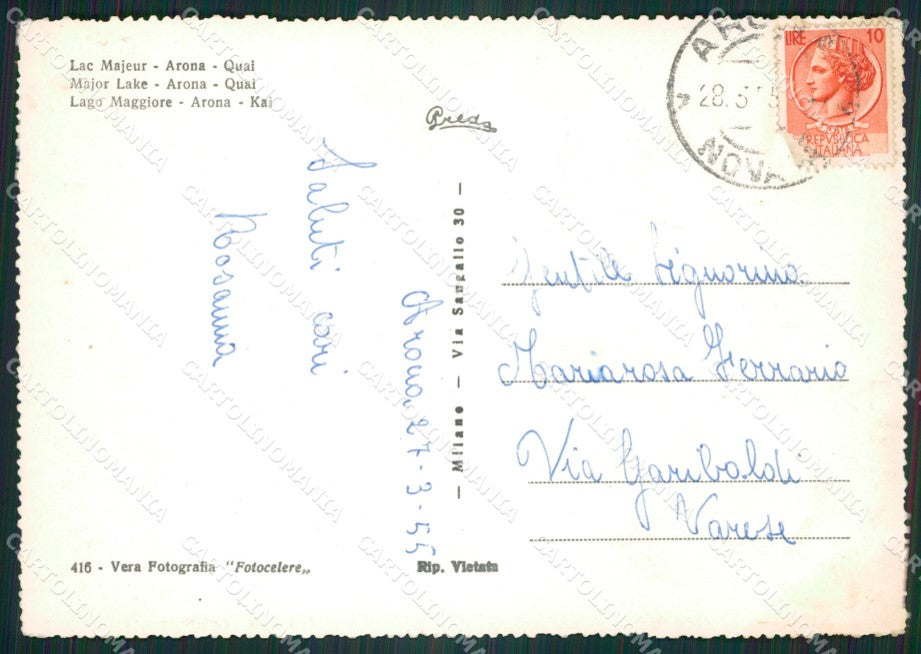 Lac Majeur - Arona - Quai
Major Lake - Arona - Quai
Lago Maggiore - Arona - Kai
Breda
LIRE 10
REPVBBLICA
ITALIANA
28.3
Saluti cari
Rosanna
Arona, 27-3-55
— Milano — Via Sangallo 30 —
Gentile Signorina
Mariarosa Ferrario
Via Garibaldi
Varese
416 - Vera Fotografia "Fotocelere„
Rip. Vietata
CARTOLINOMANIA